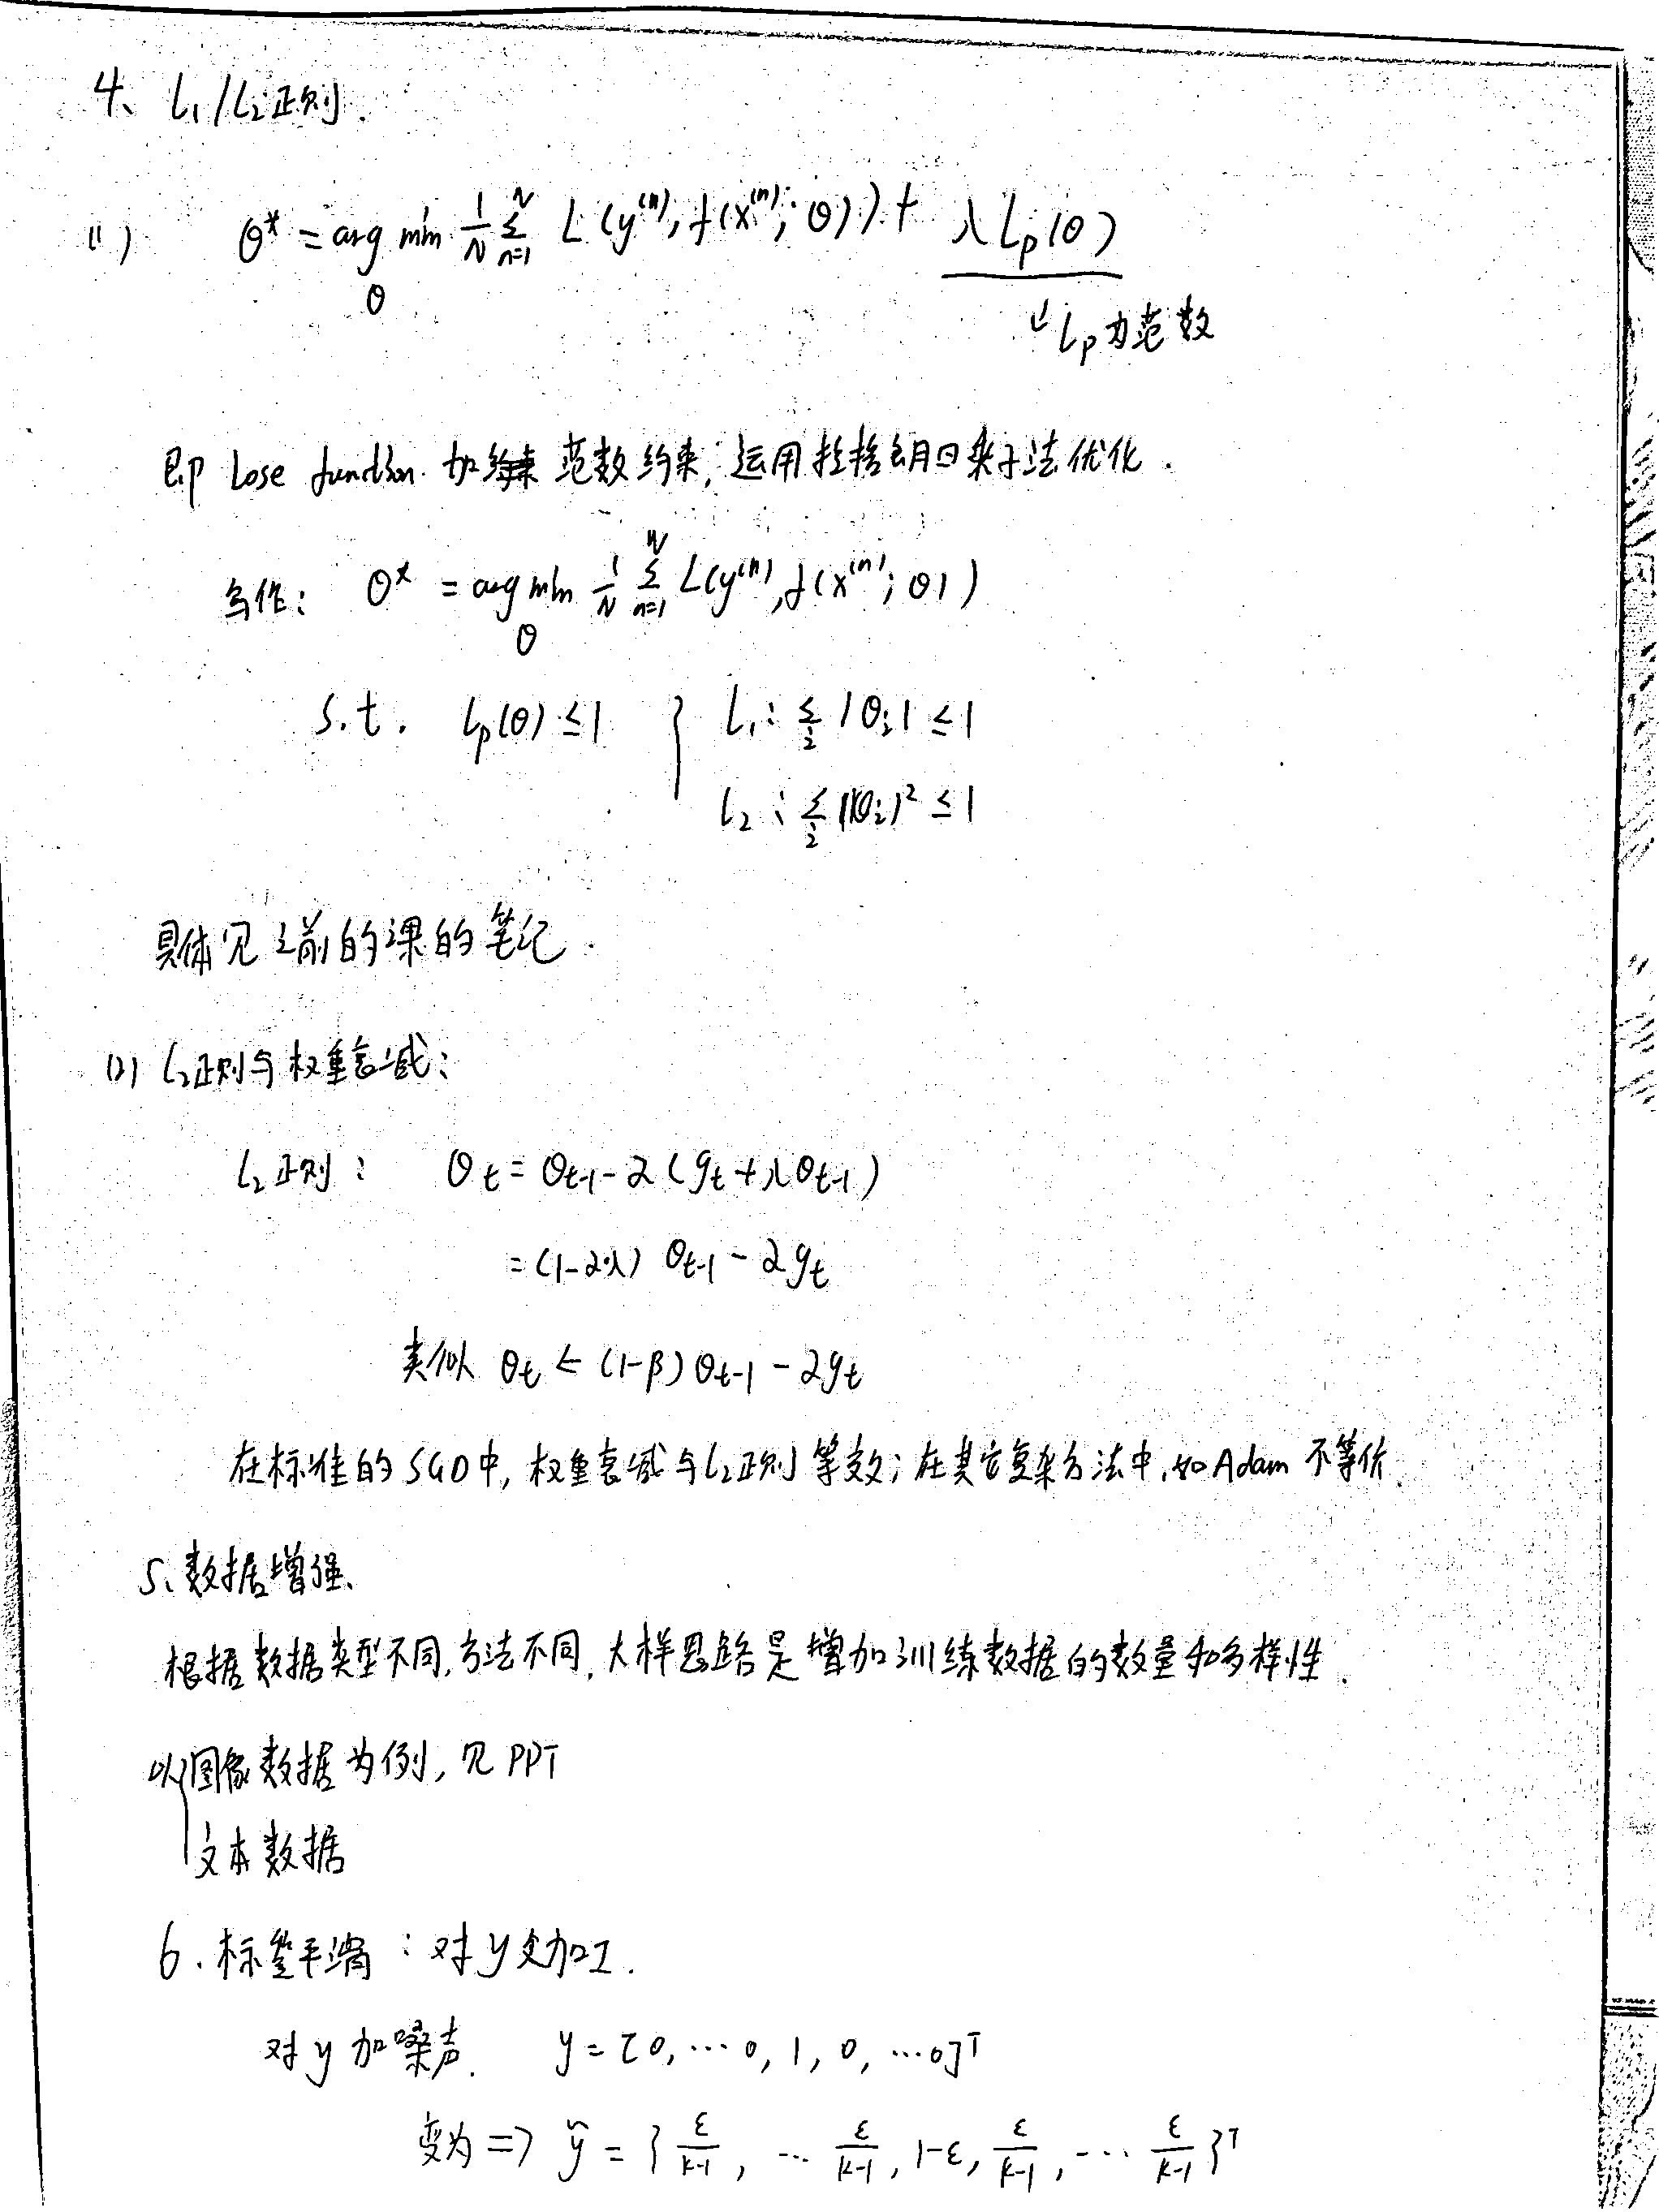 4、L₁/L₂正则.
(1) θ* = arg min 1/N Σ_{n=1}^{N} L(y^{(n)}, f(x^{(n)}; θ)) + λ Lp(θ)
θ
↓ Lp为范数
即 Lose function 加 范数约束, 运用拉格朗日乘子法优化.
写作: θ* = arg min 1/N Σ_{n=1}^{N} L(y^{(n)}, f(x^{(n)}; θ))
θ
s.t. Lp(θ) ≤ 1 } L₁: Σ_i |θ_i| ≤ 1
L₂: Σ_i (θ_i)² ≤ 1
具体见之前的课的笔记.
(2) L₂正则与权重衰减:
L₂正则: θ_t = θ_{t-1} - α(g_t + λθ_{t-1})
= (1-αλ) θ_{t-1} - αg_t
类似 θ_t ← (1-β)θ_{t-1} - αg_t
在标准的SGD中, 权重衰减与L₂正则等效; 在其它复杂方法中, 如Adam 不等价.
5、数据增强、
根据数据类型不同, 方法不同, 大样思路是增加训练数据的数量和多样性.
以{图像数据为例, 见PPT
文本数据
6.标签平滑: 对y变加工.
对y加噪声. y = [0, … 0, 1, 0, … 0]ᵀ
变为 => ỹ = { ε/(k-1), … ε/(k-1), 1-ε, ε/(k-1), … ε/(k-1) }ᵀ